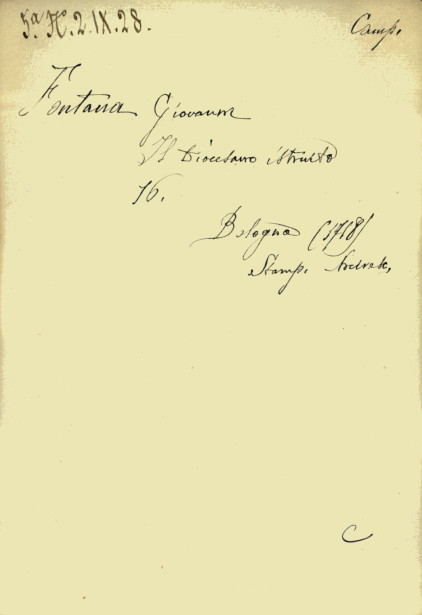 5.ª H.º 2. IX. 28.
Camp.
Fontana Giovanni
Il Diocesano istruito
16.
Bologna (1718)
Stamp.
C